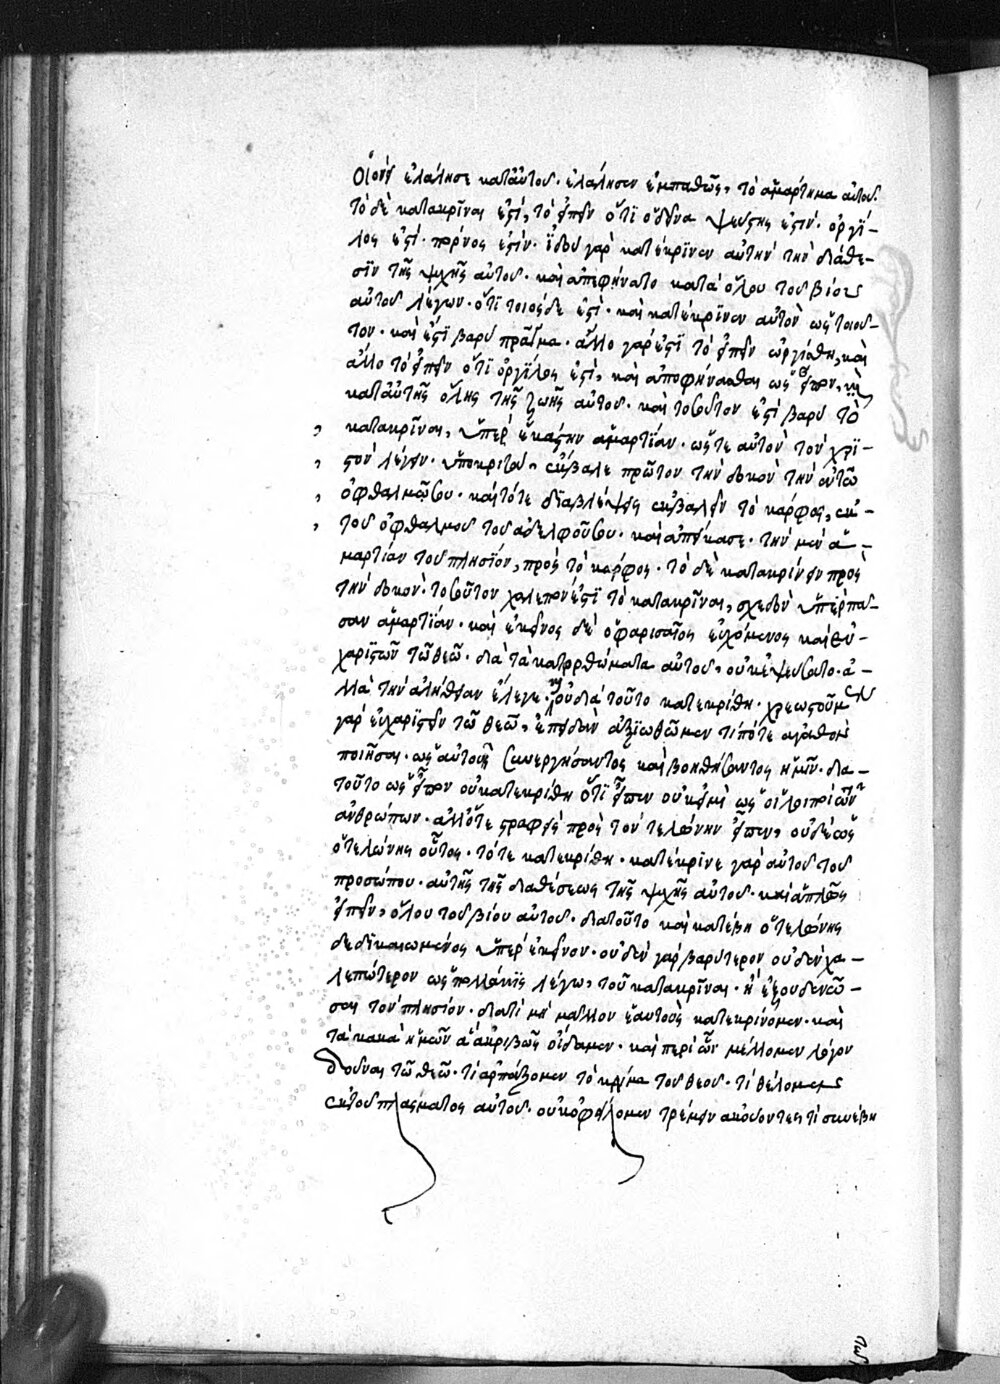 οἷον ἐλάλησε κατ' αὐτοῦ· ἐλάλησεν ἐμπαθῶς, τὸ ἁμάρτημα αὐτοῦ·
τὸ δὲ κατακρῖναι ἐστὶ, τὸ εἰπεῖν ὅτι ὁ δεῖνα ψεύστης ἐστίν· ὀργί-
λος ἐστί· πόρνος ἐστίν· ἰδοὺ γὰρ κατέκρινεν αὐτὴν τὴν διάθε-
σιν τῆς ψυχῆς αὐτοῦ· καὶ ἀπεφήνατο κατὰ ὅλου τοῦ βίου
αὐτοῦ λέγων· ὅτι τοιόσδε ἐστί· καὶ κατέκρινεν αὐτὸν ὡς τοιοῦ-
τον· καὶ ἔστι βαρὺ πρᾶγμα· ἄλλο γάρ ἐστι τὸ εἰπεῖν ὠργίσθη, καὶ
ἄλλο τὸ εἰπεῖν ὅτι ὀργίλος ἐστί, καὶ ἀποφήνασθαι ὡς εἶπον,
κατ' αὐτῆς ὅλης τῆς ζωῆς αὐτοῦ· καὶ τοσοῦτον ἐστὶ βαρὺ τὸ
κατακρῖναι, ὑπὲρ ἑκάστην ἁμαρτίαν· ὥστε αὐτὸν τὸν χρι-
στὸν λέγειν· ὑποκριτὰ, ἔκβαλε πρῶτον τὴν δοκὸν τὴν ἐν τῷ
ὀφθαλμῷ σου· καὶ τότε διαβλέψεις ἐκβαλεῖν τὸ κάρφος, ἐκ
τοῦ ὀφθαλμοῦ τοῦ ἀδελφοῦ σου· καὶ ἀπείκασε· τὴν μὲν ἁ-
μαρτίαν τοῦ πλησίον, πρὸς τὸ κάρφος· τὸ δὲ κατακρίνειν πρὸς
τὴν δοκόν· τοσοῦτον χαλεπόν ἐστι τὸ κατακρῖναι, σχεδὸν ὑπὲρ πᾶ-
σαν ἁμαρτίαν· καὶ ἐκεῖνος δὲ ὁ φαρισαῖος εὐχόμενος καὶ εὐ-
χαριστῶν τῷ θεῷ· διὰ τὰ κατορθώματα αὐτοῦ, οὐκ ἐψεύσατο· ἀ-
λλὰ τὴν ἀλήθειαν ἔλεγε· καὶ οὐ διὰ τοῦτο κατεκρίθη· χρεωστοῦμεν
γὰρ εὐχαριστεῖν τῷ θεῷ, ἐπειδὰν ἀξιωθῶμεν τί ποτε ἀγαθὸν
ποιῆσαι· ὡς αὐτοῦ συνεργήσαντος καὶ βοηθήσαντος ἡμῖν· διὰ
τοῦτο ὡς εἶπον οὐ κατεκρίθη ὅτι εἶπεν οὐκ εἰμὶ ὡς οἱ λοιποὶ τῶν
ἀνθρώπων· ἀλλ' ὅτε στραφεὶς πρὸς τὸν τελώνην εἶπεν, οὐδὲ ὡς
ὁ τελώνης οὗτος· τότε κατεκρίθη· κατέκρινε γὰρ αὐτοῦ τοῦ
προσώπου· αὐτῆς τῆς διαθέσεως τῆς ψυχῆς αὐτοῦ· καὶ ἁπλῶς
εἰπεῖν, ὅλου τοῦ βίου αὐτοῦ· διὰ τοῦτο καὶ κατέβη ὁ τελώνης
δεδικαιωμένος ὑπὲρ ἐκεῖνον· οὐδὲν γὰρ βαρύτερον οὐδὲν χα-
λεπώτερον ὡς πολλάκις λέγω, τοῦ κατακρῖναι· ἢ ἐξουδενῶ-
σαι τὸν πλησίον· διατί μὴ μᾶλλον ἑαυτοὺς κατεκρίνομεν· καὶ
τὰ κακὰ ἡμῶν ἃ ἀκριβῶς οἴδαμεν· καὶ περὶ ὧν μέλλομεν λόγον
δοῦναι τῷ θεῷ· τί ἁρπάζομεν τὸ κρίμα τοῦ θεοῦ· τί θέλομεν
ἐκ τοῦ πλάσματος αὐτοῦ· οὐκ ὀφείλομεν τρέμειν ἀκούοντες τί συνέβη